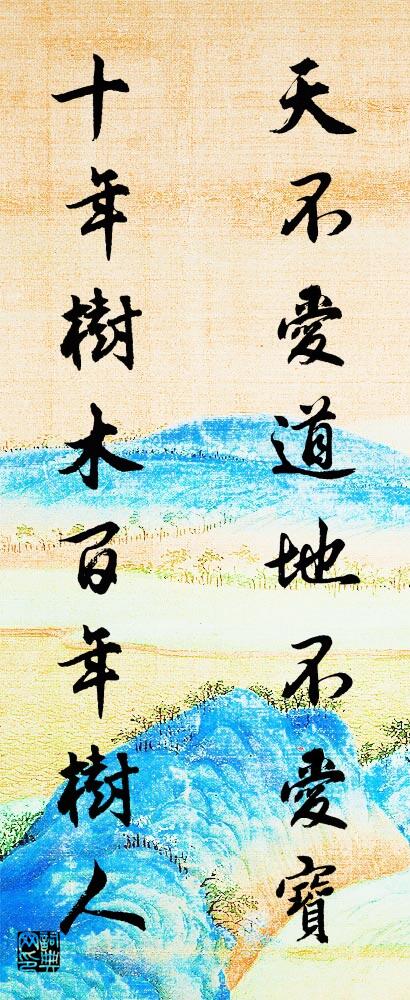 天不愛道地不愛寶
十年樹木百年樹人